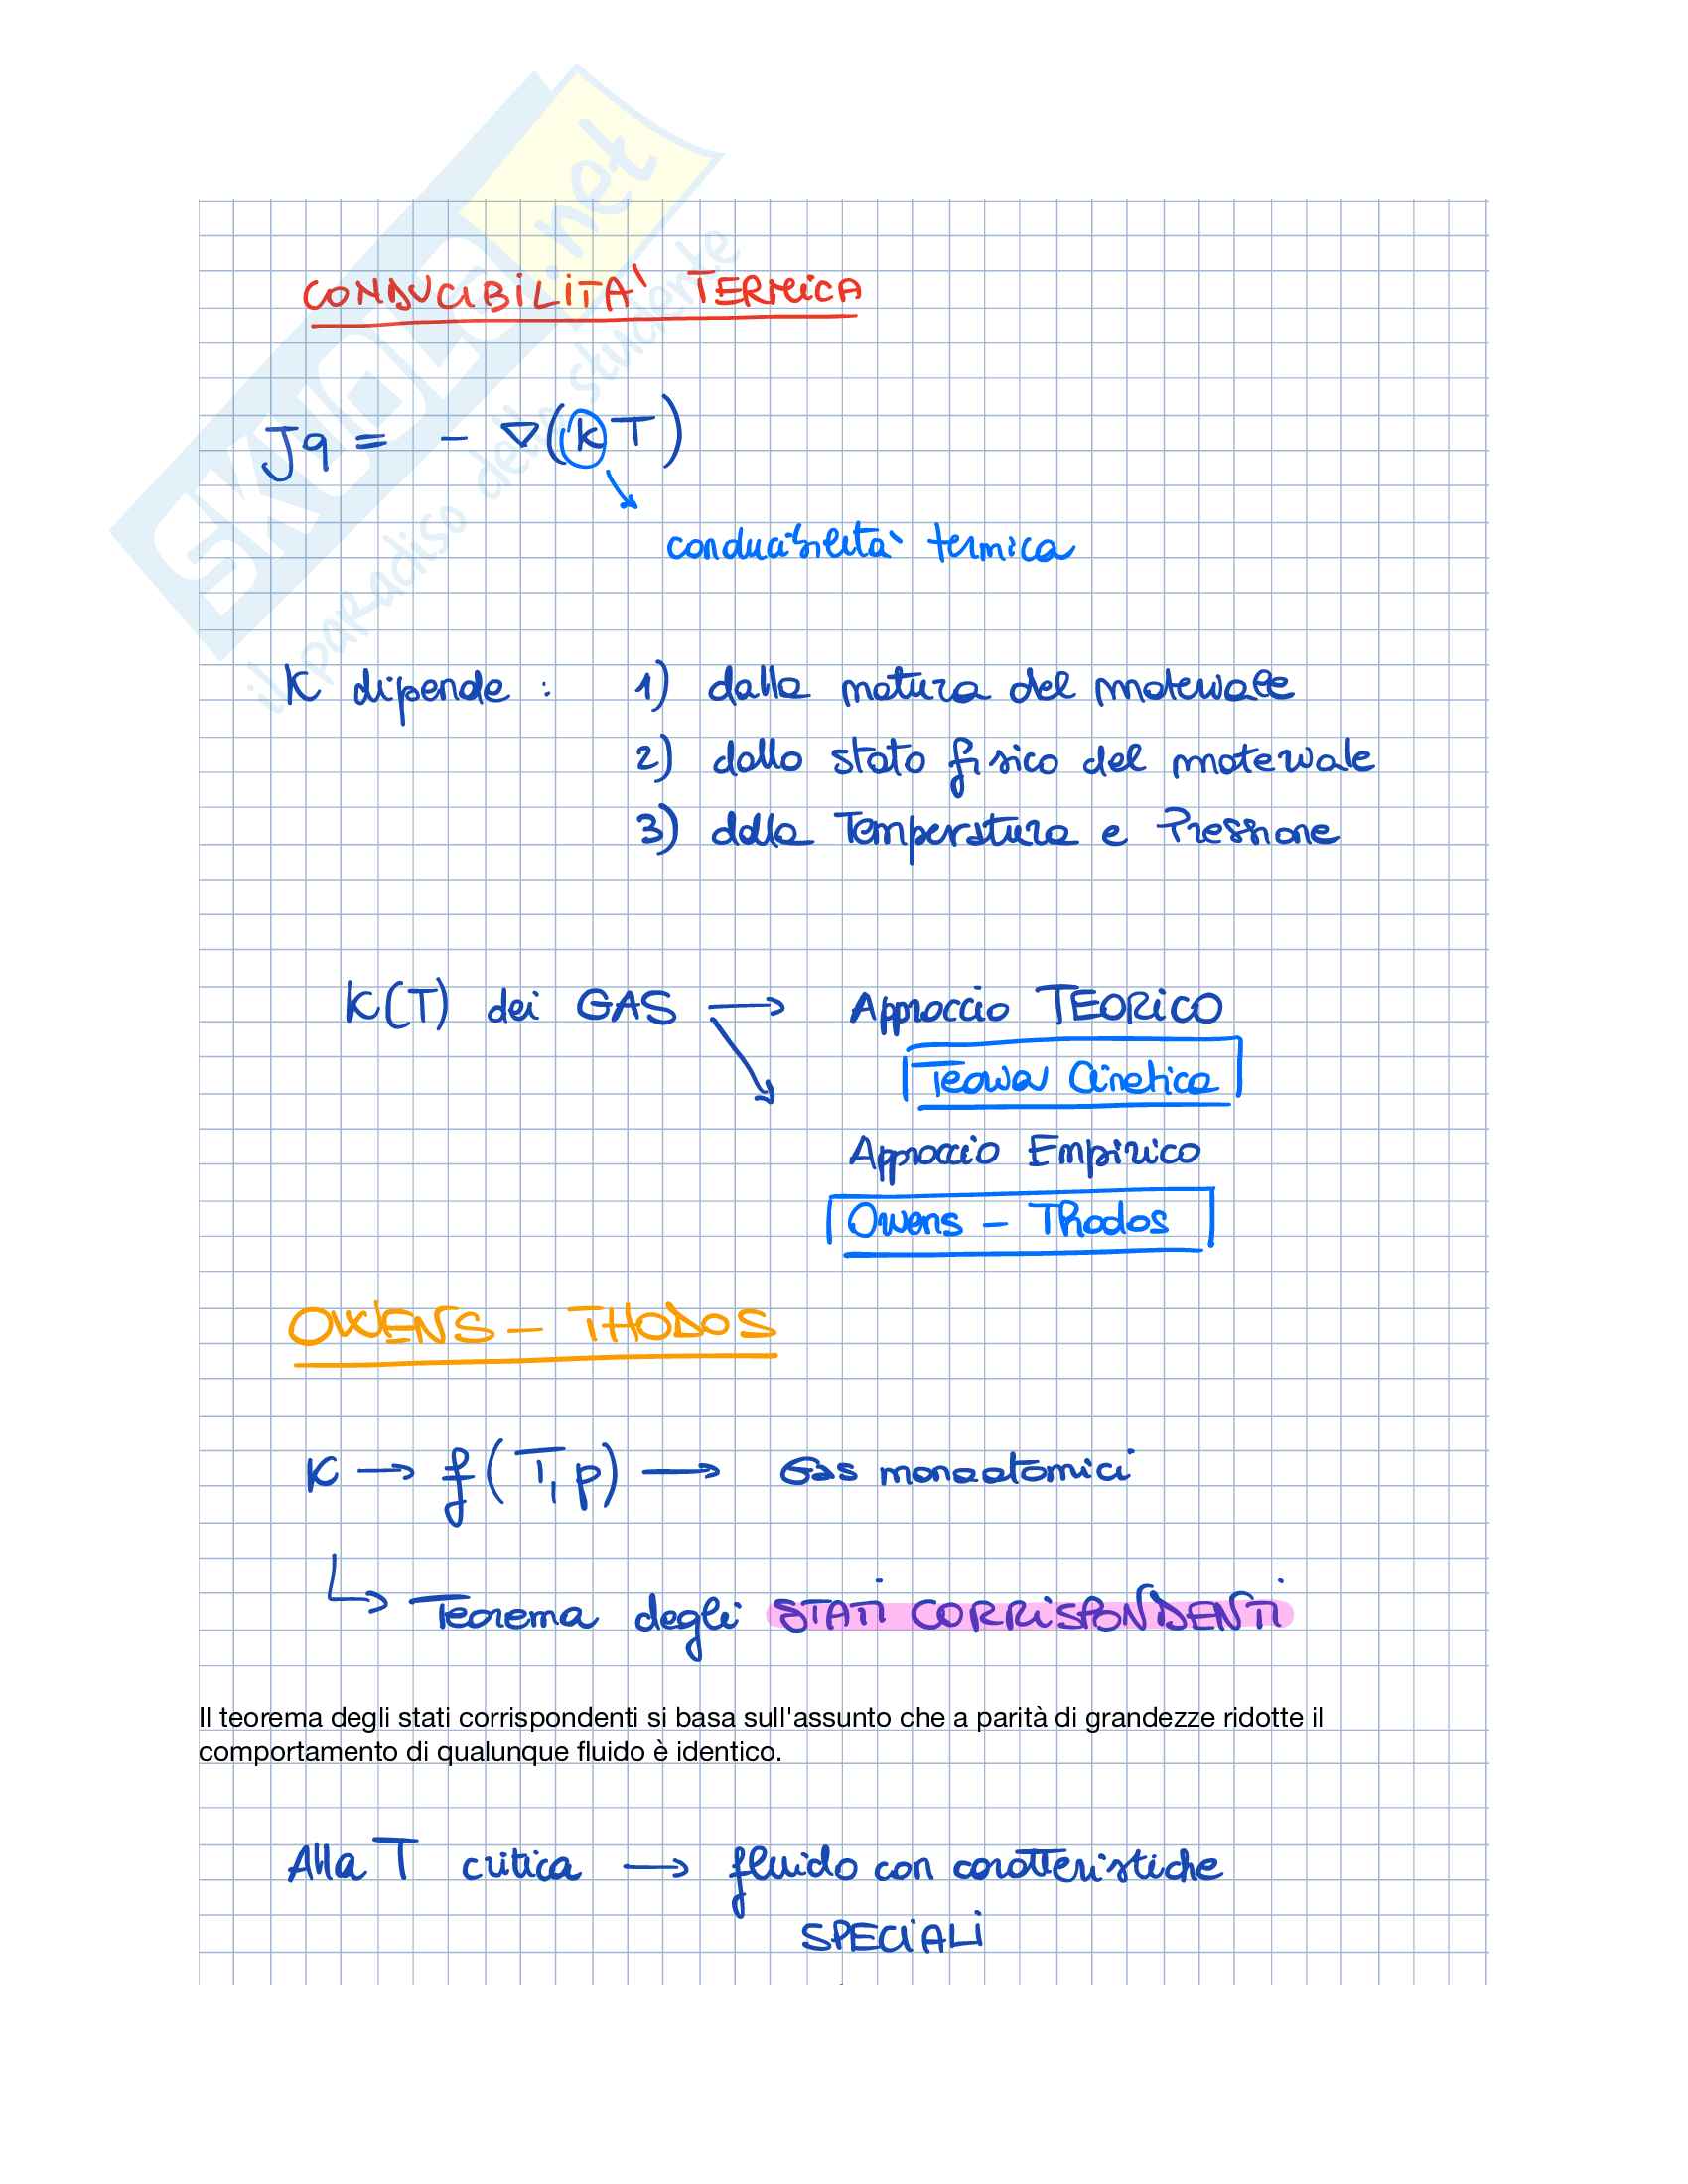 SKUOLA.net
il paradiso dello studente
CONDUCIBILITA' TERMICA
Jq = - ∇(kT)
conducibilità termica
K dipende : 1) dalla natura del materiale
2) dallo stato fisico del materiale
3) dalla Temperatura e Pressione
K(T) dei GAS → Approccio TEORICO
Teoria Cinetica
Approccio Empirico
Owens - Thodos
OWENS - THODOS
K → f(T, p) → Gas monoatomici
↳ Teorema degli STATI CORRISPONDENTI
Il teorema degli stati corrispondenti si basa sull'assunto che a parità di grandezze ridotte il
comportamento di qualunque fluido è identico.
Alla T critica → fluido con caratteristiche
SPECIALI